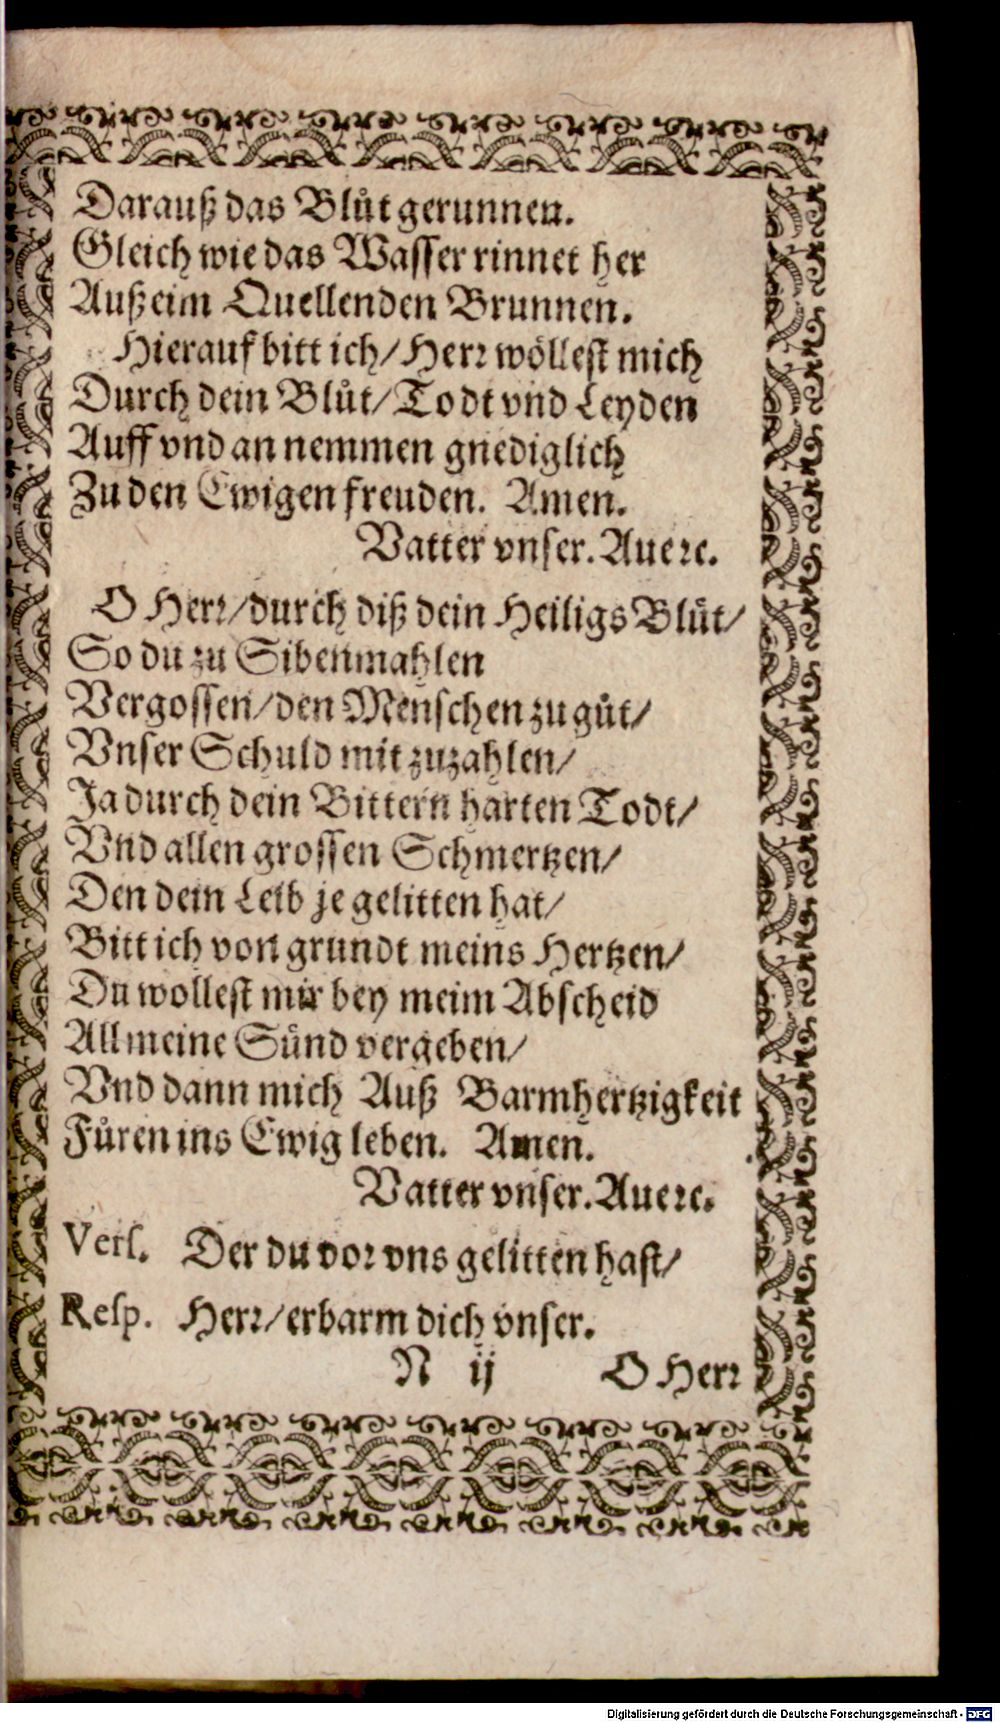 Darauß das Blůt gerunnen.
Gleich wie das Wasser rinnet her
Auß eim Quellenden Brunnen.
Hierauf bitt ich/ Herr wöllest mich
Durch dein Blůt/ Todt vnd Leyden
Auff vnd an nemmen gnediglich
Zu den Ewigen freuden. Amen.
Vatter vnser. Aue ꝛc.
O Herr/ durch diß dein Heiligs Blůt/
So du zu Sibenmahlen
Vergossen/ den Menschen zu gůt/
Vnser Schuld mit zuzahlen/
Ja durch dein Bittern harten Todt/
Vnd allen grossen Schmertzen/
Den dein Leib je gelitten hat/
Bitt ich von grundt meins Hertzen/
Du wollest mir bey meim Abscheid
All meine Sünd vergeben/
Vnd dann mich Auß Barmhertzigkeit
Füren ins Ewig leben. Amen.
Vatter vnser. Aue ꝛc.
Vers. Der du vor vns gelitten hast/
Resp. Herr/ erbarm dich vnser.
N ij O Herr
Digitalisierung gefördert durch die Deutsche Forschungsgemeinschaft - DFG